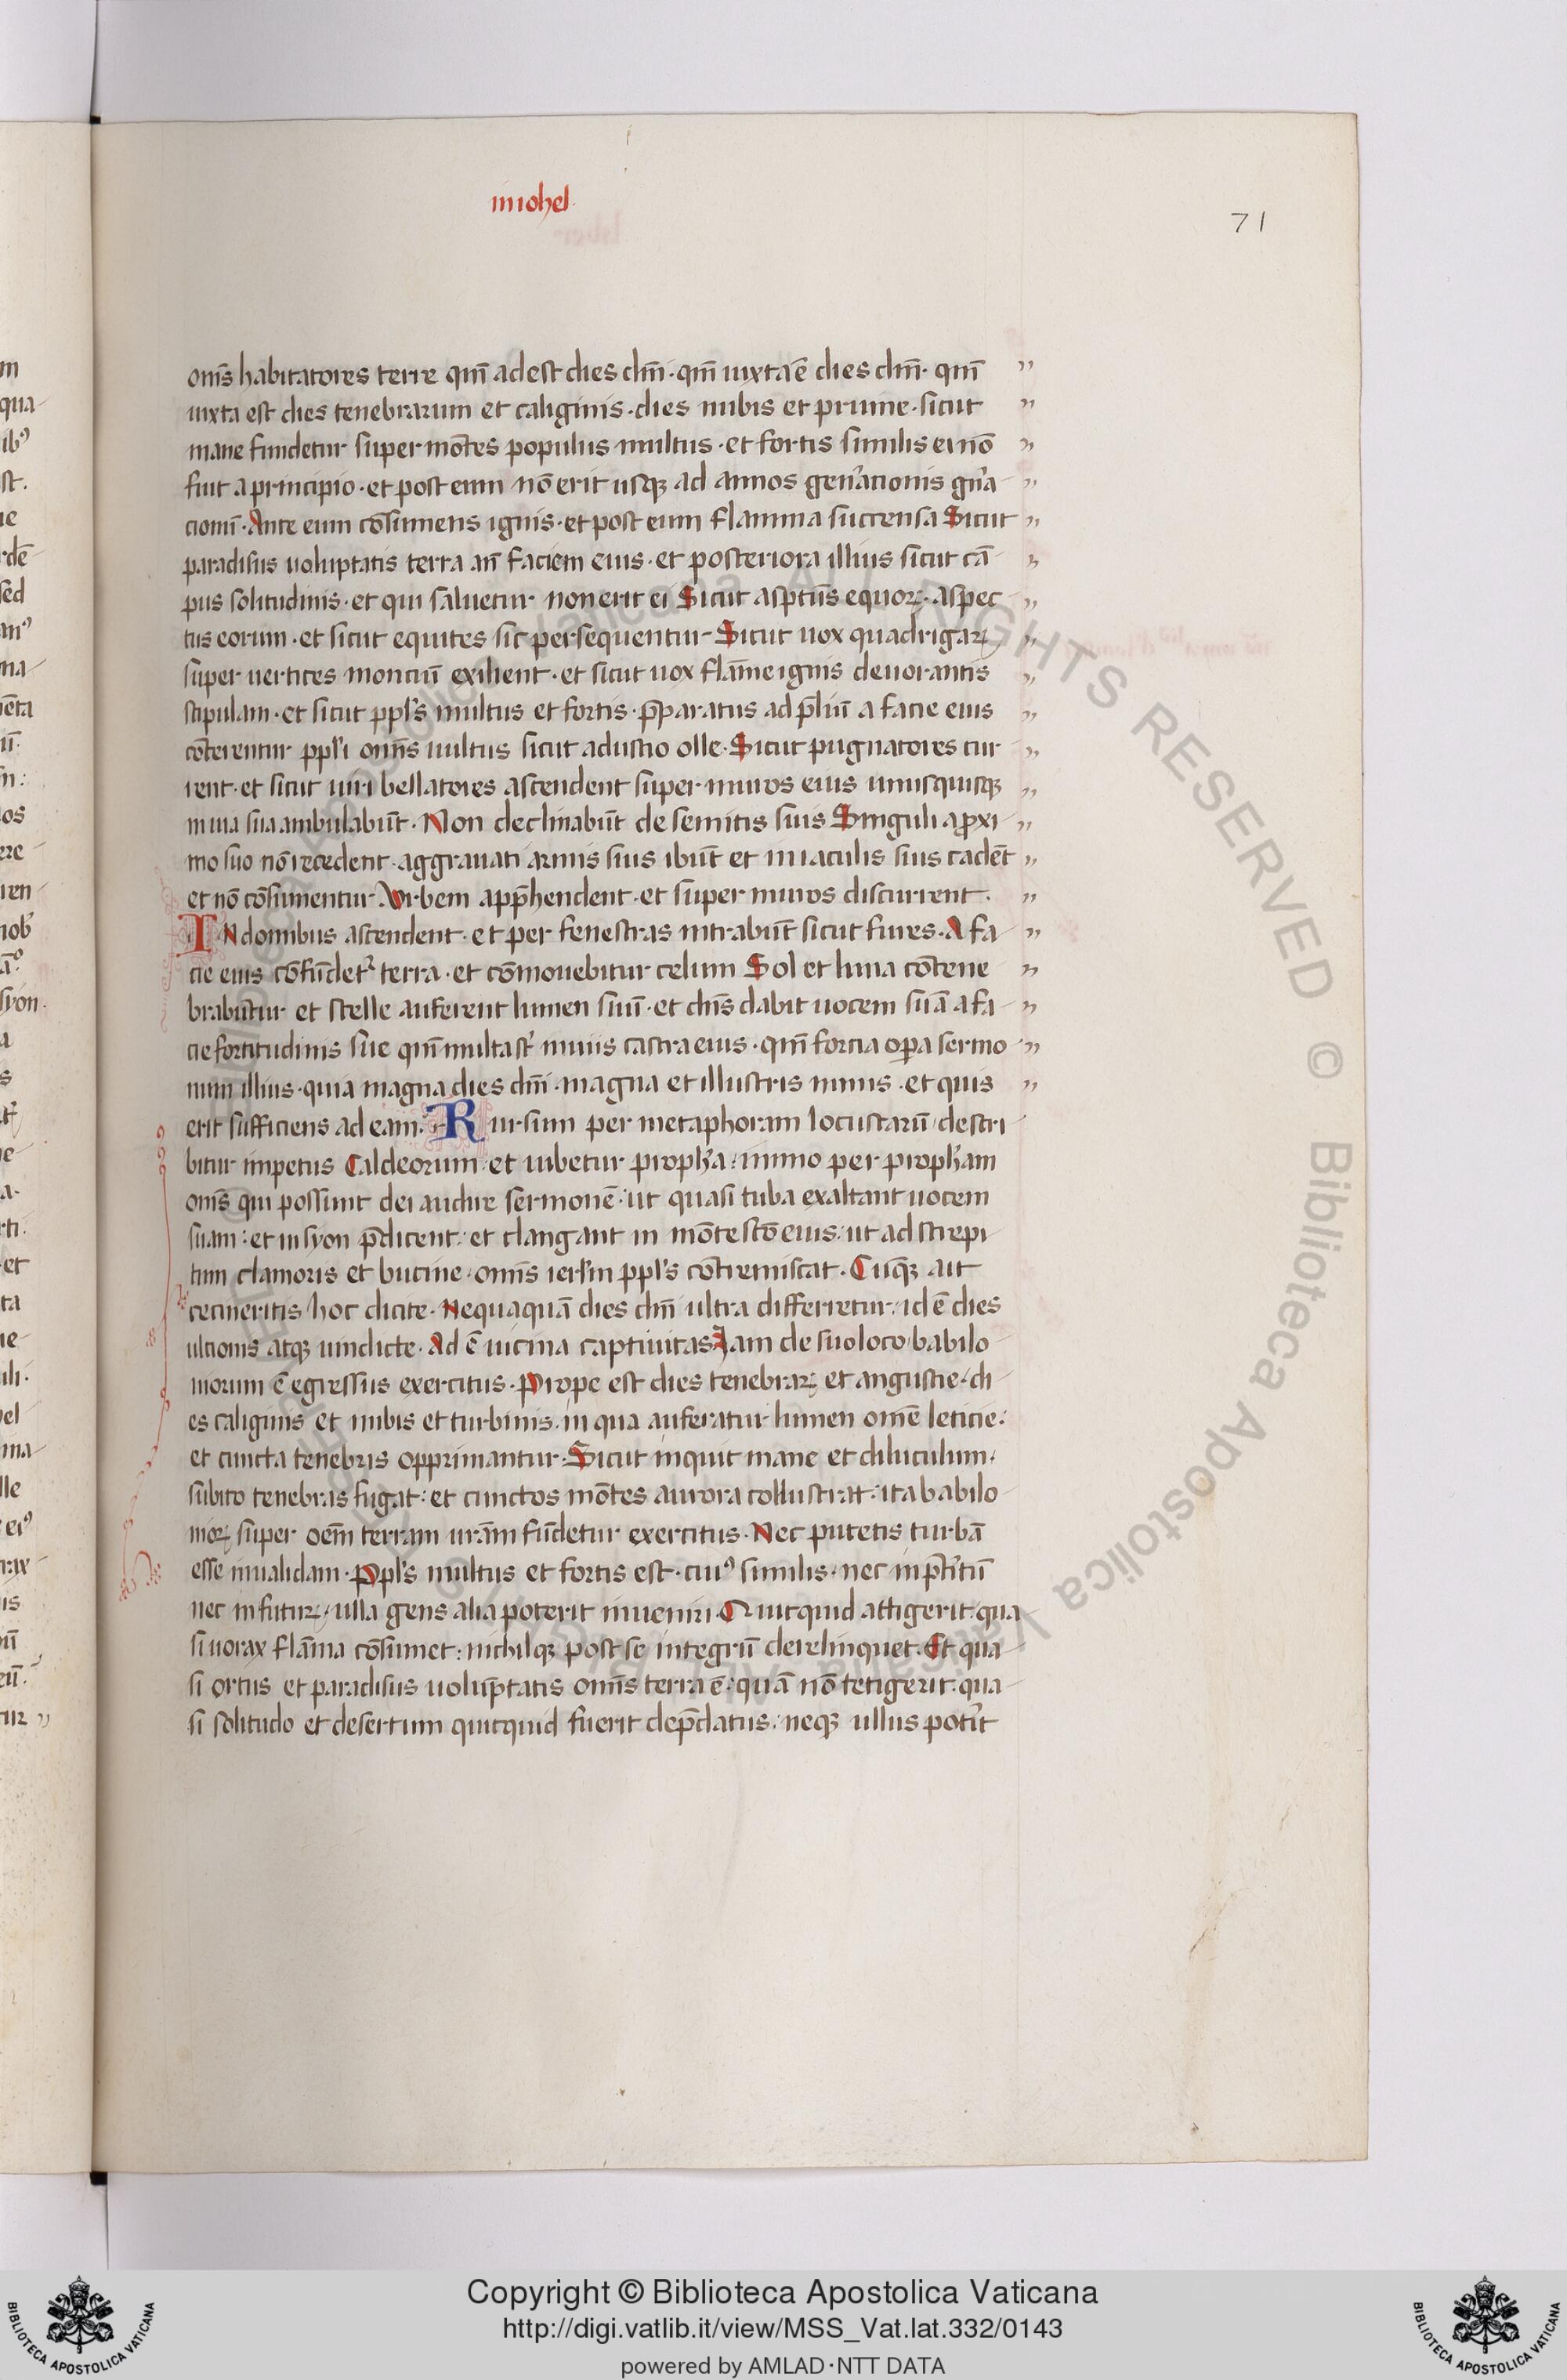 in iohel
71
om̄s habitatores terre qm̄ adest dies dm̄i · qm̄ iuxta ē dies dm̄i · qm̄ ,,
iuxta est dies tenebrarum et caliginis · dies nubis et pruine · sicut ,,
mane fundetur super mōtes populus multus · et fortis similis ei nō ,,
fuit a principio · et post eum nō erit usqꝫ ad annos gen̄acionis gn̄a ,,
cionū · Ante eum cōsumens ignis · et post eum flamma succensa Sicut ,,
paradisus uoluptatis terra an̄ faciem eius · et posteriora illius sicut cā ,,
pus solitudinis · et qui saluetur non erit ei Sicut asptūs equoꝝ · aspec ,,
tus eorum · et sicut equites sic persequentur Sicut uox quadrigaꝝ ,,
super uertices monciū exilient · et sicut uox flāme ignis deuorantis ,,
stipulam · et sicut ppl's multus et fortis · p̄paratus ad p̄liū a facie eius ,,
cōterentur ppl'i om̄s uultus sicut adustio olle · Sicut pugnatores cur ,,
rent · et sicut uiri bellatores ascendent super muros eius unusquisqꝫ ,,
in uia sua ambulabūt · Non declinabūt de semitis suis Singuli a ꝓxi ,,
mo suo nō recedent · aggrauati armis suis ibūt et in iaculis suis cadēt ,,
et nō cōsumentur Vrbem app̄hendent · et super muros discurrent · ,,
IN domibus ascendent · et per fenestras intrabūt sicut fures · A fa ,,
cie eius cōfūdet᷑ terra · et cōmouebitur celum Sol et luna cōtene ,,
brabūtur et stelle auferent lumen suū · et dn̄s dabit uocem suā a fa ,,
cie fortitudinis sue qm̄ multa st̄ nimis castra eius · qm̄ forcia oꝑa sermo ,,
num illius · quia magna dies dm̄i · magna et illustris nimis · et quis ,,
erit sufficiens ad eam · Rursum per metaphoram locustarū descri
bitur impetus Caldeorum · et iubetur propħa · immo per propħam
om̄s qui possunt dei audire sermonē · ut quasi tuba exaltant uocem
suam · et in syon p̄dicent · et clangant in mōte scō eius · ut ad strepi
tum clamoris et bucine · om̄s ierl'm ppl's cōtremiscat · Cuqꝫ ait
cecineritis hoc dicite · Nequaquā dies dm̄i ultra differretur · id ē dies
ultionis atqꝫ uindicte · Ad ē uicina captiuitas Iam de suo loco babilo
niorum ē egressus exercitus · Prope est dies tenebraꝝ et angustie · di
es caliginis et nubis et turbinis · in qua auferatur lumen omē leticie ·
et cuncta tenebris opprimantur · Sicut inquit mane et diluculum ·
subito tenebras fugat · et cunctos mōtes aurora collustrat · ita babilo
nioꝝ super oēm terram ur̄am fūdetur exercitus · Nec putetis turbā
esse inualidam · Ppl's multus et fortis est · cui᷒ similis · nec in p̄t'itū
nec in futuꝝ · ulla gens alia poterit inueniri · Quicquid attigerit · qua
si uorax flāma cōsumet : nichilqꝫ post se integrū derelinquet · Et qua
si ortus et paradisus uoluptatis om̄s terra ē · quā nō tetigerit · qua
si solitudo et desertum quicquid fuerit dep̄datus · neqꝫ ullus pot'it
Copyright © Biblioteca Apostolica Vaticana
http://digi.vatlib.it/view/MSS_Vat.lat.332/0143
powered by AMLAD·NTT DATA
BIBLIOTECA APOSTOLICA VATICANA
BIBLIOTECA APOSTOLICA VATICANA